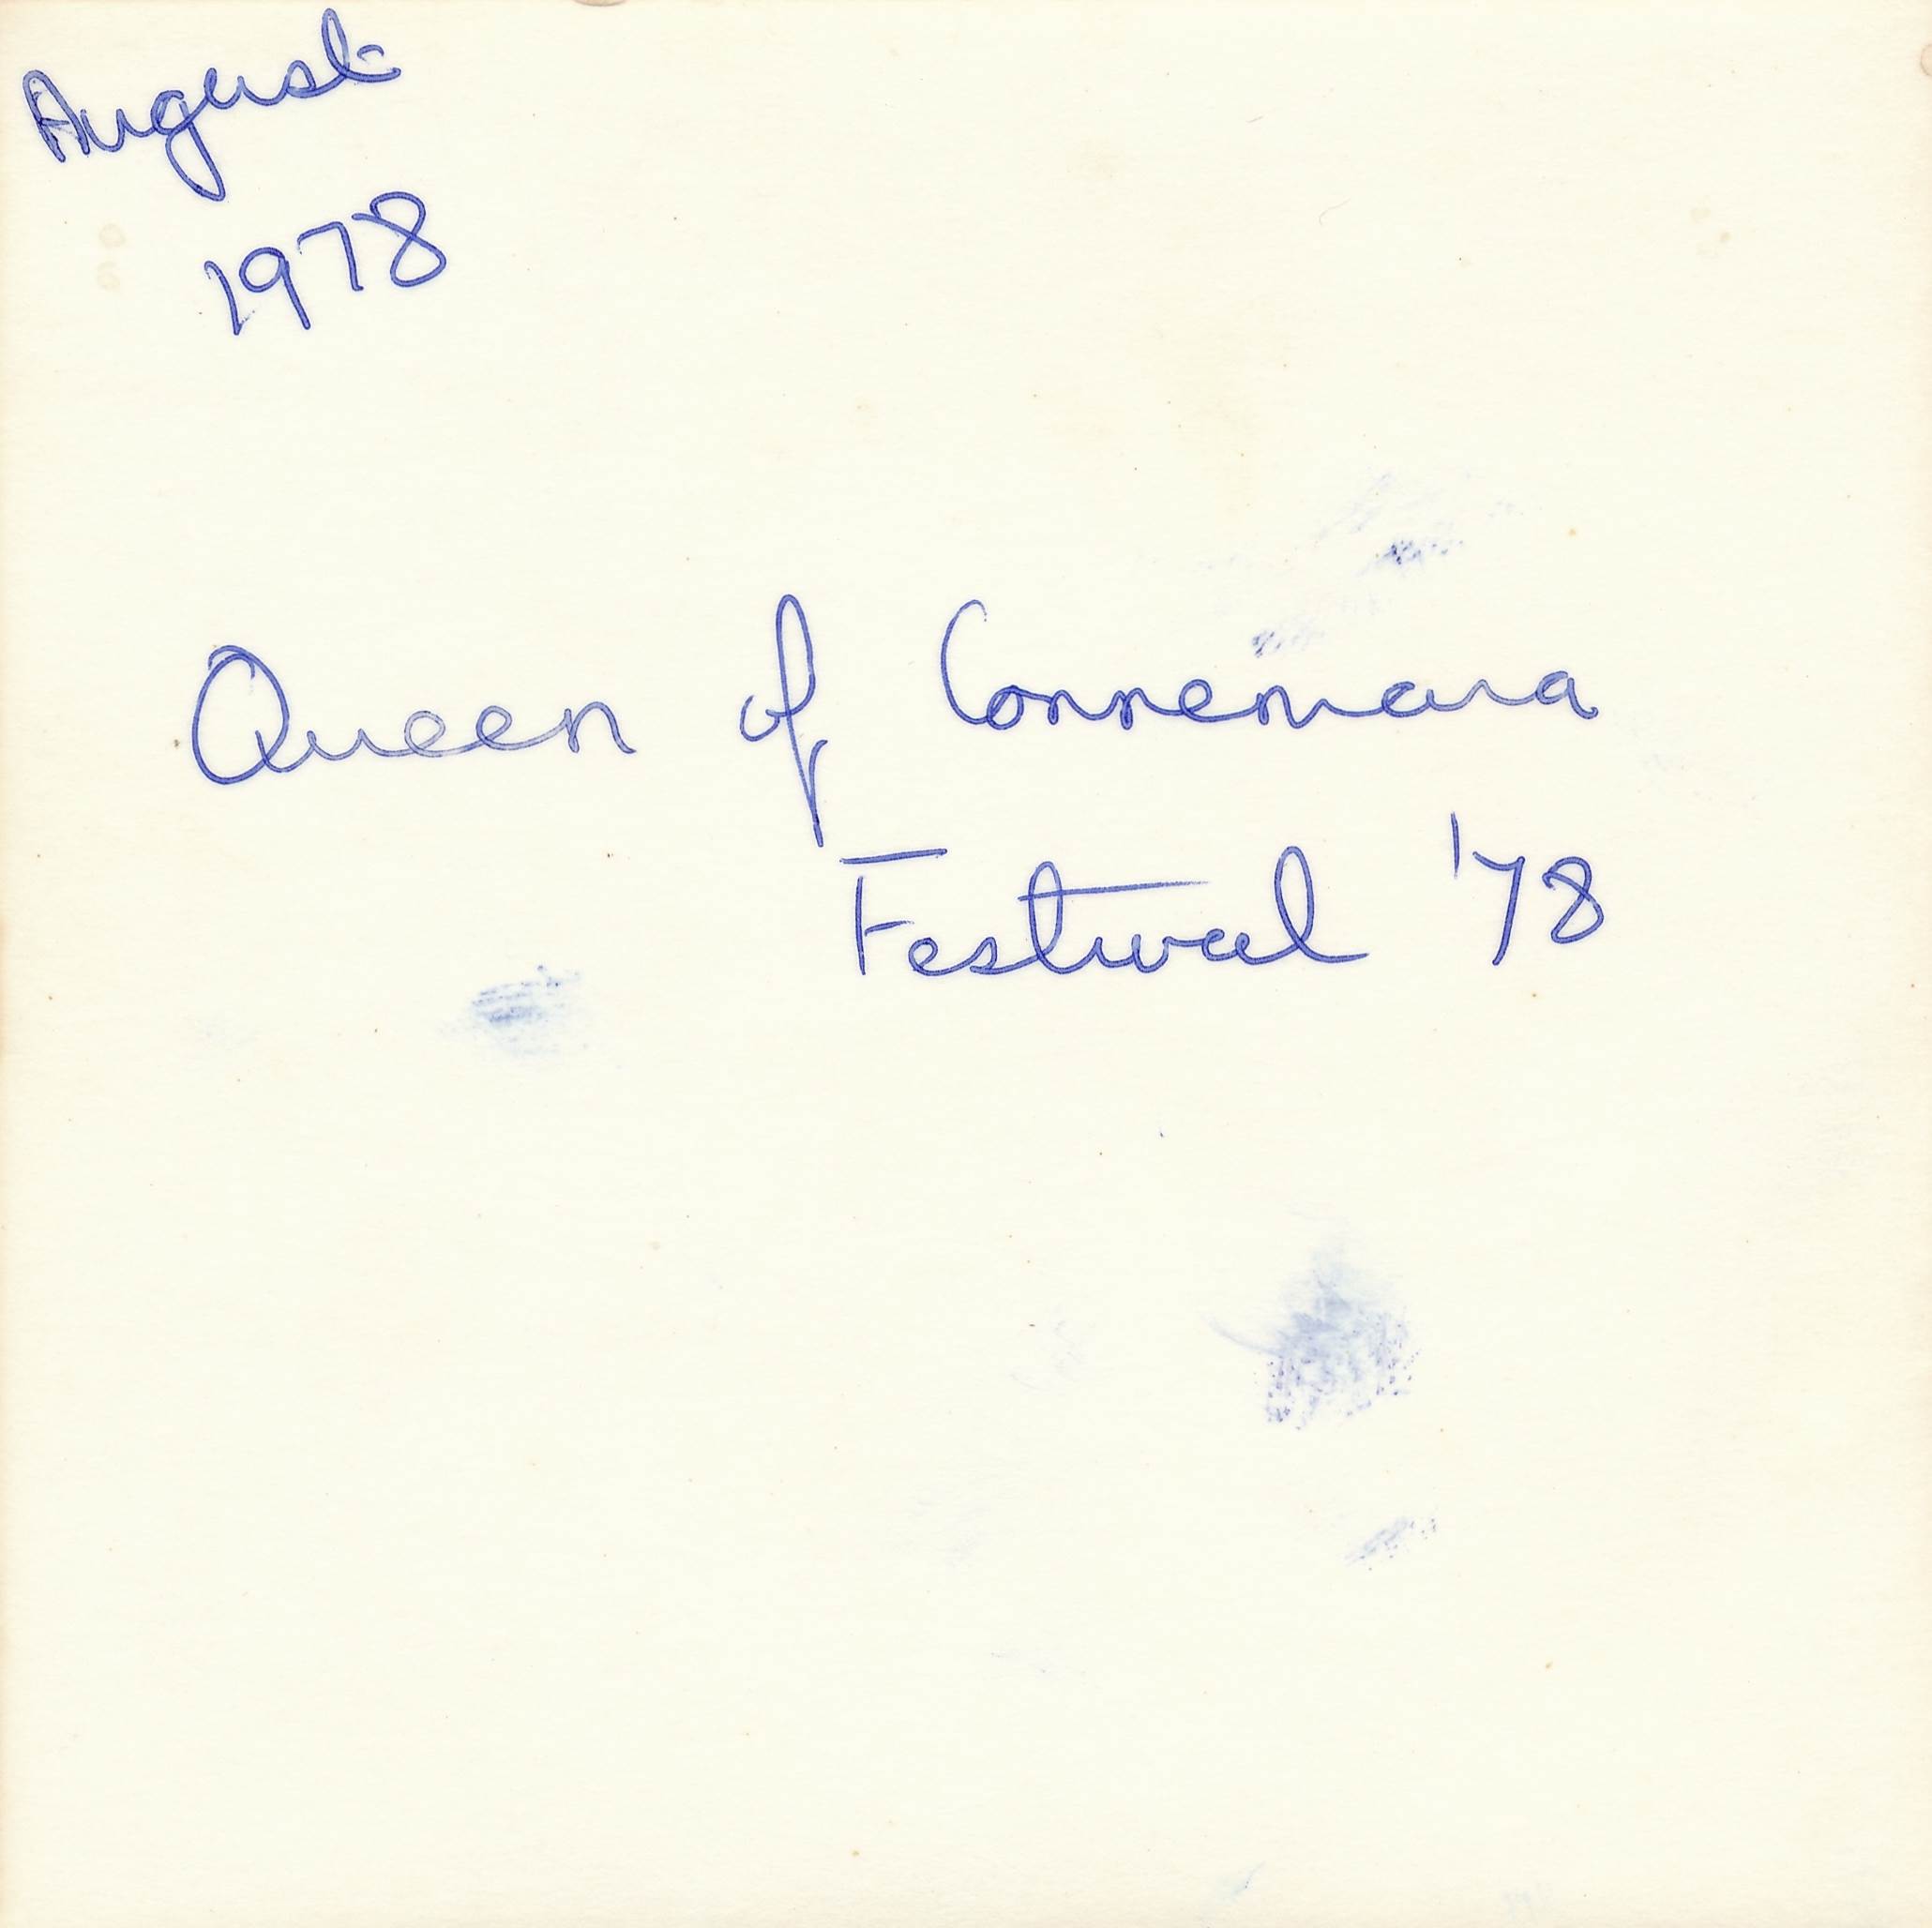 August
1978
Queen of Connemara
Festival '78